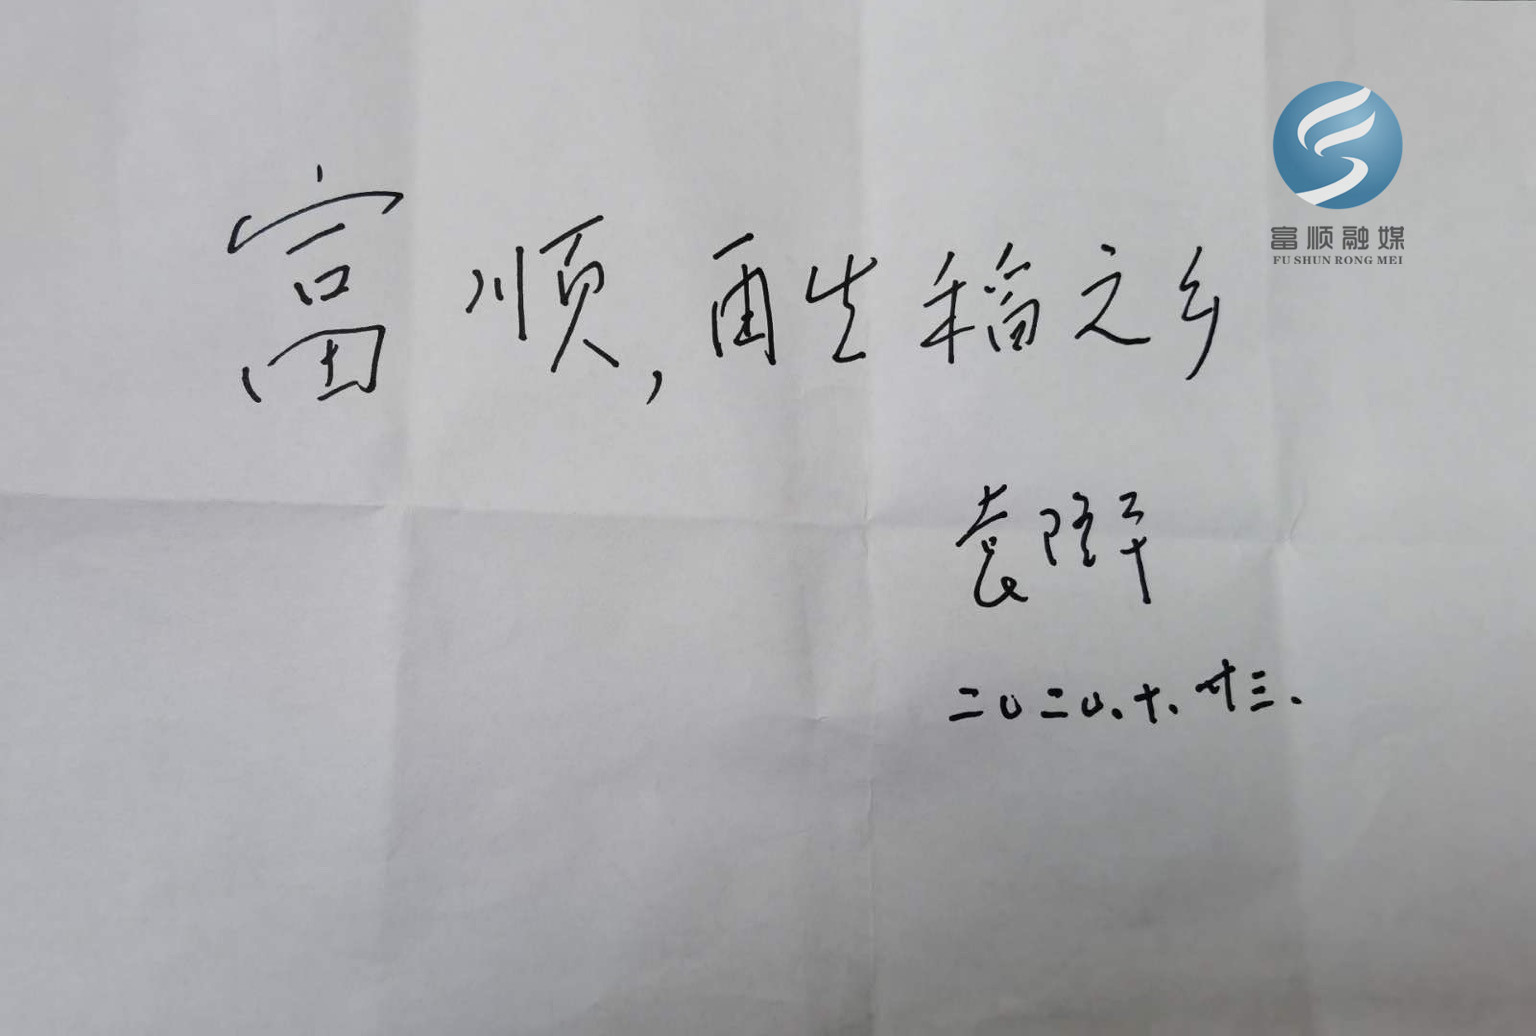 富顺,再生稻之乡
袁隆平
二〇二〇.十.廿三.
富顺融媒
FU SHUN RONG MEI